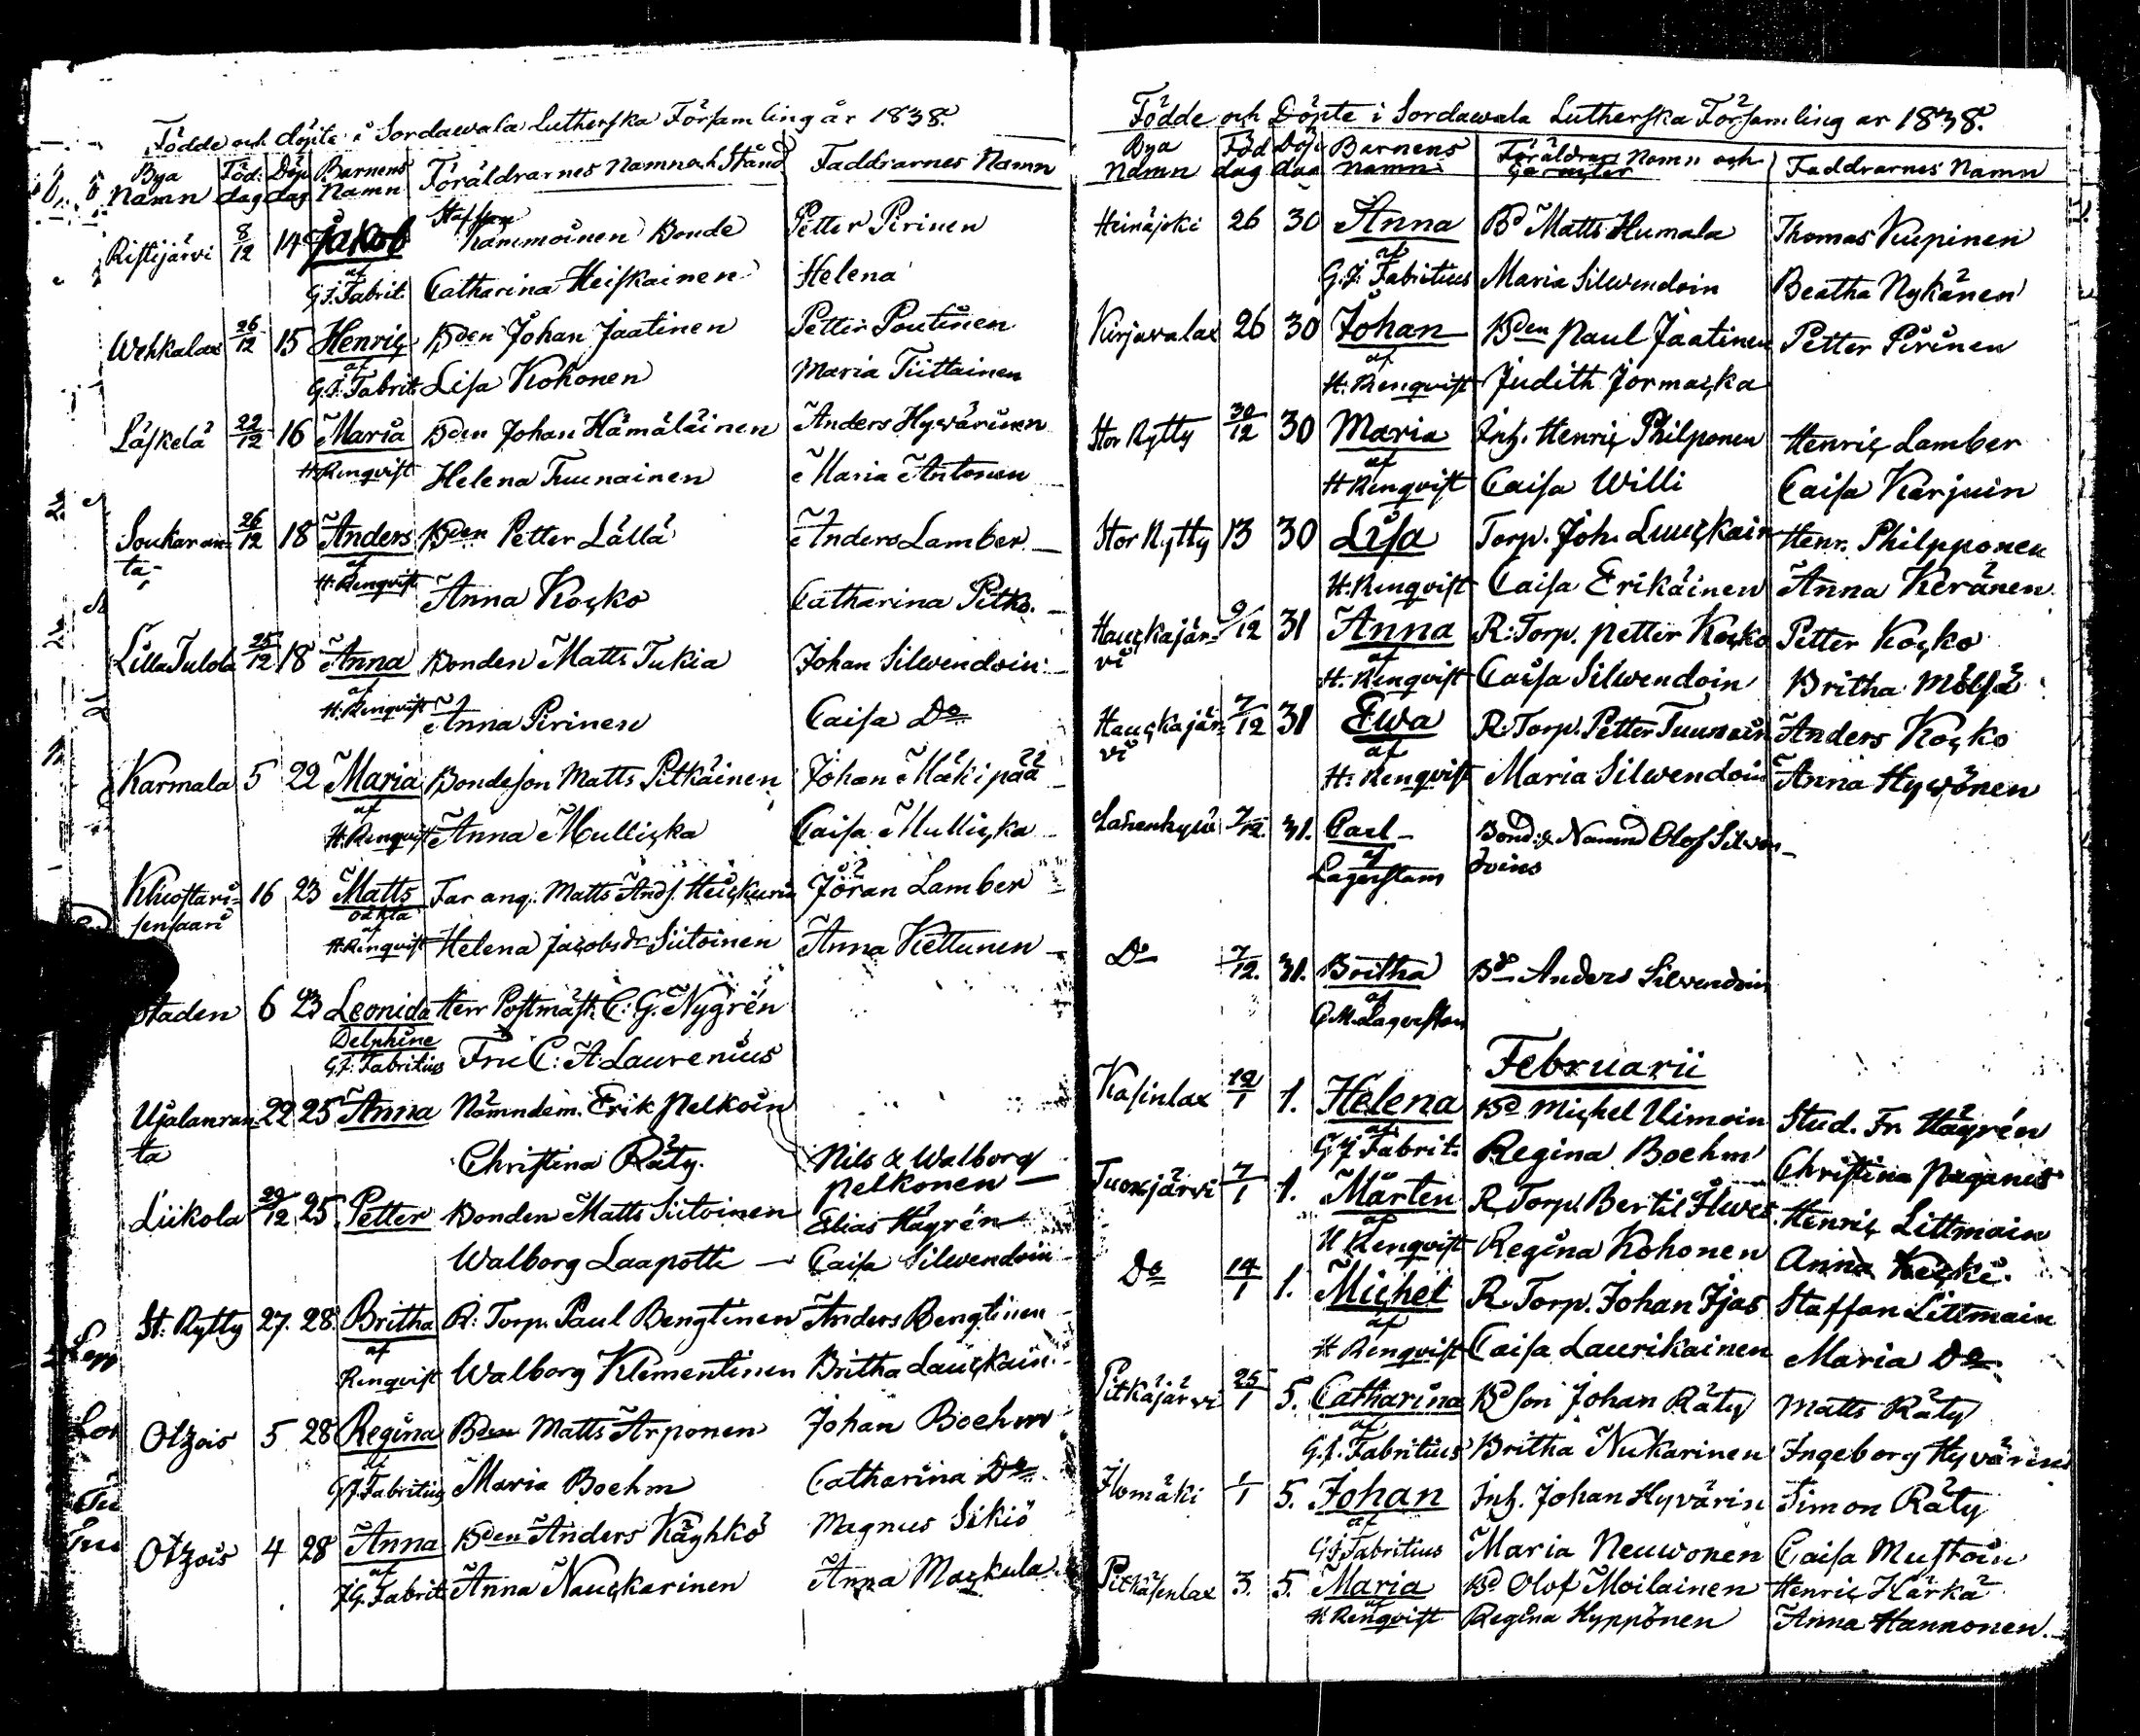 Födde och döpte i Sordawala Lutherska Församling år 1838.
Bya Namn Föd: dag Döp dag Barnens Namn Föräldrarnes Namn och Stånd Faddrarnes Namn
Ristijärvi 8/12 14 Jakob Staffan Kammoinen Bonde Petter Pirinen
af G.F. Fabrit. Catharina Heiskainen Helena
Wehkalax 26/12 15 Henric Bden Johan Jaatinen Petter Poutinen
af G.F. Fabrit. Lisa Kohonen Maria Tiittainen
Läskelä 22/12 16 Maria Bden Johan Hämäläinen Anders Hyvärinen
H. Renqvist Helena Tuunainen Maria Antonen
Soukanran= 26/12 18 Anders Bden Petter Lällä Anders Lamber
ta; af H. Renqvist Anna Kocko Catharina Pitko.
Lilla Tulola 25/12 18 Anna Bonden Matts Tukia Johan Silwendoin
af H. Renqvist Anna Pirinen Caisa Do
Karmala 5 22 Maria Bondeson Matts Pitkäinen Johan Mäkipää
af H. Renqvist Anna Mullicka Caisa Mullicka
16 23 Matts Matts Jöran Lamber
sensaari oäkta af H. Renqvist Helena Jacobsdr Siitoinen Anna Kettunen
Staden 6 23 Leonida Herr Postmäst. C: G. Nygrén
Delphine G.F. Fabritius Fru C: A: Laurenius
Ujalanran= 22 25 Anna Nämndem. Erik Pelkoin
ta Christina Räty. Nils & Walborg
Pelkonen
Liikola 29/12 25 Petter Bonden Matts Siitoinen Elias Hägrén
Walborg Laapotti Caisa Silwendoin
St: Rytty 27. 28. Britha R: Torp. Paul Bengtinen Anders Bengtinen
af Renqvist Walborg Klementinen Britha Lauckain.
Otzois 5 28 Regina Bden Matts Arponen Johan Boehm
af G.F. Fabritius Maria Boehm Catharina Do
Otzois 4 28 Anna Bden Anders Käyhkö Magnus Sikiö
af F.G. Fabrit. Anna Nauckarinen Anna Mackula
Födde och Döpte i Sordawala Lutherska Församling ar 1838.
Bya Namn Föd dag Döp dag Barnens Namn Föräldrars Namn och Faddrarnes Namn
Heinäjoki 26 30 Anna Bd Matts Humala Thomas Kupinen
af G.F. Fabritius Maria Silwendoin Beatha Nykänen
Kirjavalax 26 30 Johan Bden Paul Jaatinen Petter Pirinen
af H. Renqvist Judith Jormacka
Stor Rytty 30/12 30 Maria Inh. Henric Philponen Henric Lamber
af H Renqvist Caisa Willi Caisa Karjuin
Stor Rytty 13 30 Lisa Torp. Joh. Luuckain Henr. Philpponen
H. Renqvist Caisa Erikäinen Anna Keränen
Hauckajär= 9/12 31 Anna R: Torp. Petter Kocko Petter Kocko
vi af H. Renqvist Caisa Silwendoin Britha Mölsä
Hauckajär= 7/12 31 Ewa R: Torp. Petter Tuunain Anders Kocko
vi af H. Renqvist Maria Silwendoin Anna Hywönen
7/12. 31. Carl Bond: & Nämnd Olof Silwen=
af Lagerstam doins
Do 7/12. 31. Britha Bd Anders Silvendoin
af
Februarii
Kasinlax 12/1 1. Helena Bd Michel Uimoin Stud. Fr Hägrén
af G.F. Fabrit. Regina Boehm Christina Paganus
Tuoxjärvi 7/1 1. Mårten R Torp. Bertil Ilwes Henric Littmain
af H Renqvist Regina Kohonen Anna
Do 14/1 1. Michel R Torp. Johan Ijas Staffan Littmain
af H Renqvist Caisa Laurikainen Maria Do
Pitkäjärvi 25/1 5. Catharina Bdson Johan Räty Matts Räty
af G.F. Fabritius Britha Nukarinen Ingeborg Hyvärine
Ilomäki 1/1 5. Johan Inh. Johan Hyvärin Simon Räty
af G.F. Fabritius Maria Neuwonen Caisa Mustoin
3. 5. Maria Bd Olof Moilainen Henric Härkä
af H Renqvist Regina Hyppönen Anna Hannonen.